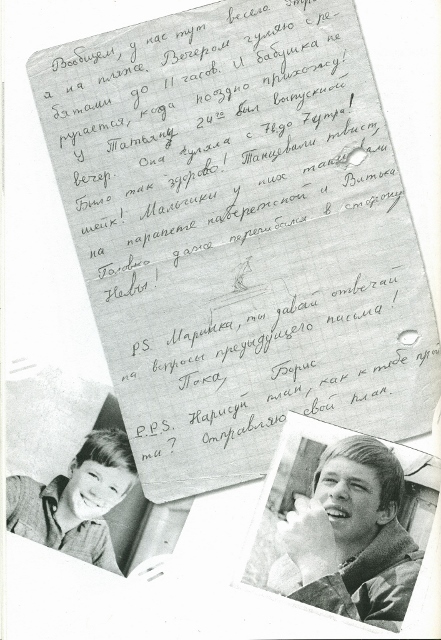 Вообщем, у нас тут весело. Утром
я на пляже. Вечером гуляю с ре-
бятами до 11 часов. И бабушка не
ругается, когда поздно прихожу!
У Татьяны 24го был выпускной
вечер. Она гуляла с 7 до 7 утра!
Было так здорово! Танцевали твист,
шейк! Мальчики у них танцевали
на парапете набережной и Витька
Головко даже перегибался в сторону
Невы!
PS. Маринка, ты давай отвечай
на вопросы предыдущего письма!
Пока, Борис
P.P.S. Нарисуй план, как к тебе прой
ти? Отправляю свой план.